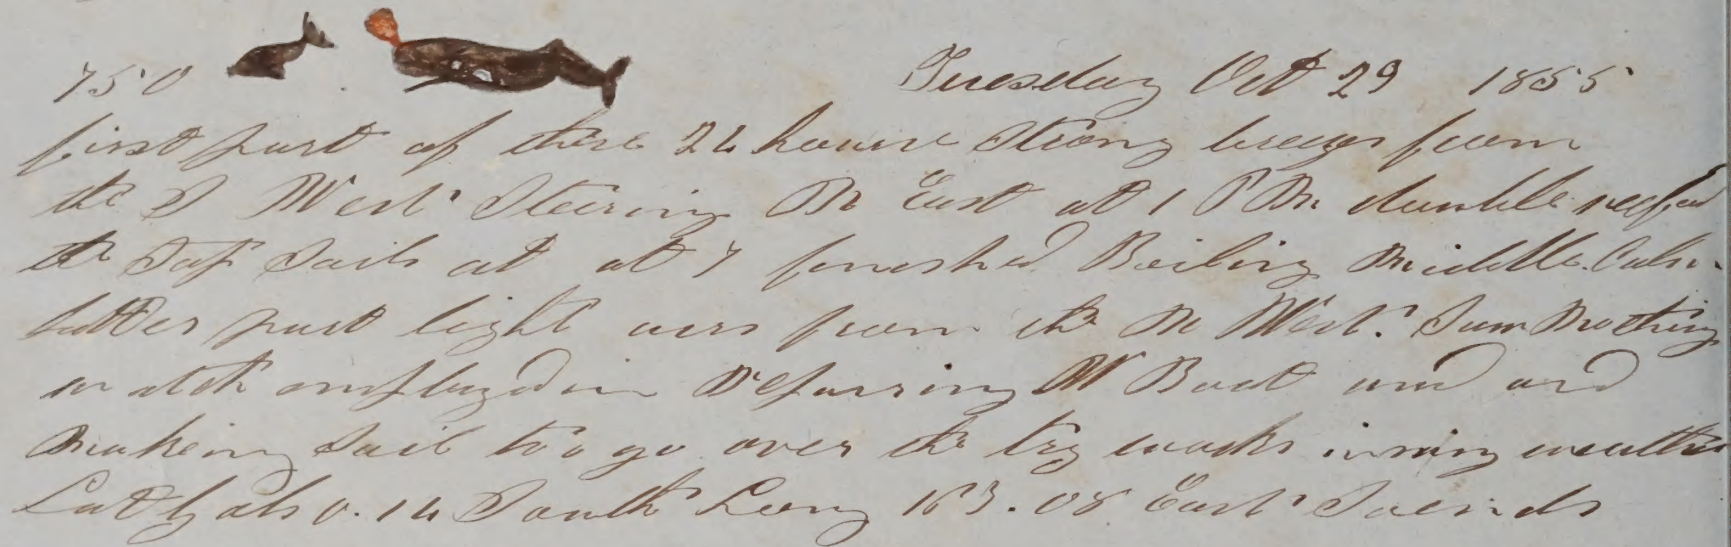 750 Tuesday Oct 29 1855
first part of these 24 hours Strong breezes from
the S West Steering N East at 1 P M duuble reefed
the Top Sails at at 7 fineshed Boiling Middle Calm
latter part light airs from the N West. Saw Nothing
watch employed in Reparring W Boat and and
Makeing Sail to go over the try works in rainy weather
Lat by obs 0.14 South Long 163.08 East